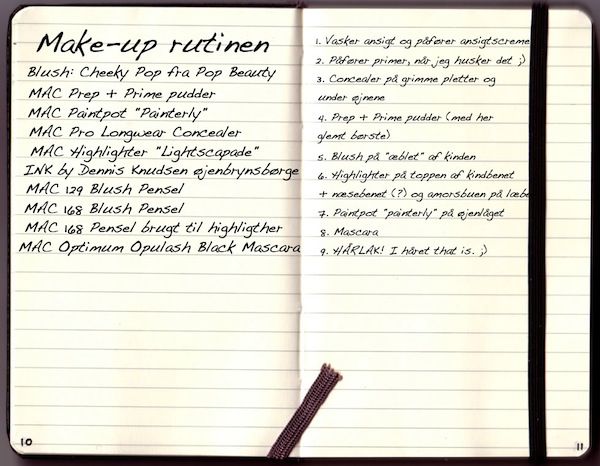 Make-up rutinen
Blush: Cheeky Pop fra Pop Beauty
MAC Prep + Prime pudder
MAC Paintpot "Painterly"
MAC Pro Longwear Concealer
MAC Highlighter "Lightscapade"
INK by Dennis Knudsen øjenbrynsbørge
MAC 129 Blush Pensel
MAC 168 Blush Pensel
MAC 168 Pensel brugt til highligther
MAC Optimum Opulash Black Mascara
10
1. Vasker ansigt og påfører ansigtscreme
2. Påfører primer, når jeg husker det ;)
3. Concealer på grimme pletter og
under øjnene
4. Prep + Prime pudder (med her
glemt børste)
5. Blush på "æblet" af kinden
6. Highlighter på toppen af kindbenet
+ næsebenet (?) og amorsbuen på læbe
7. Paintpot "painterly" på øjenlåget
8. Mascara
9. HÅRLAK! I håret that is. ;)
11